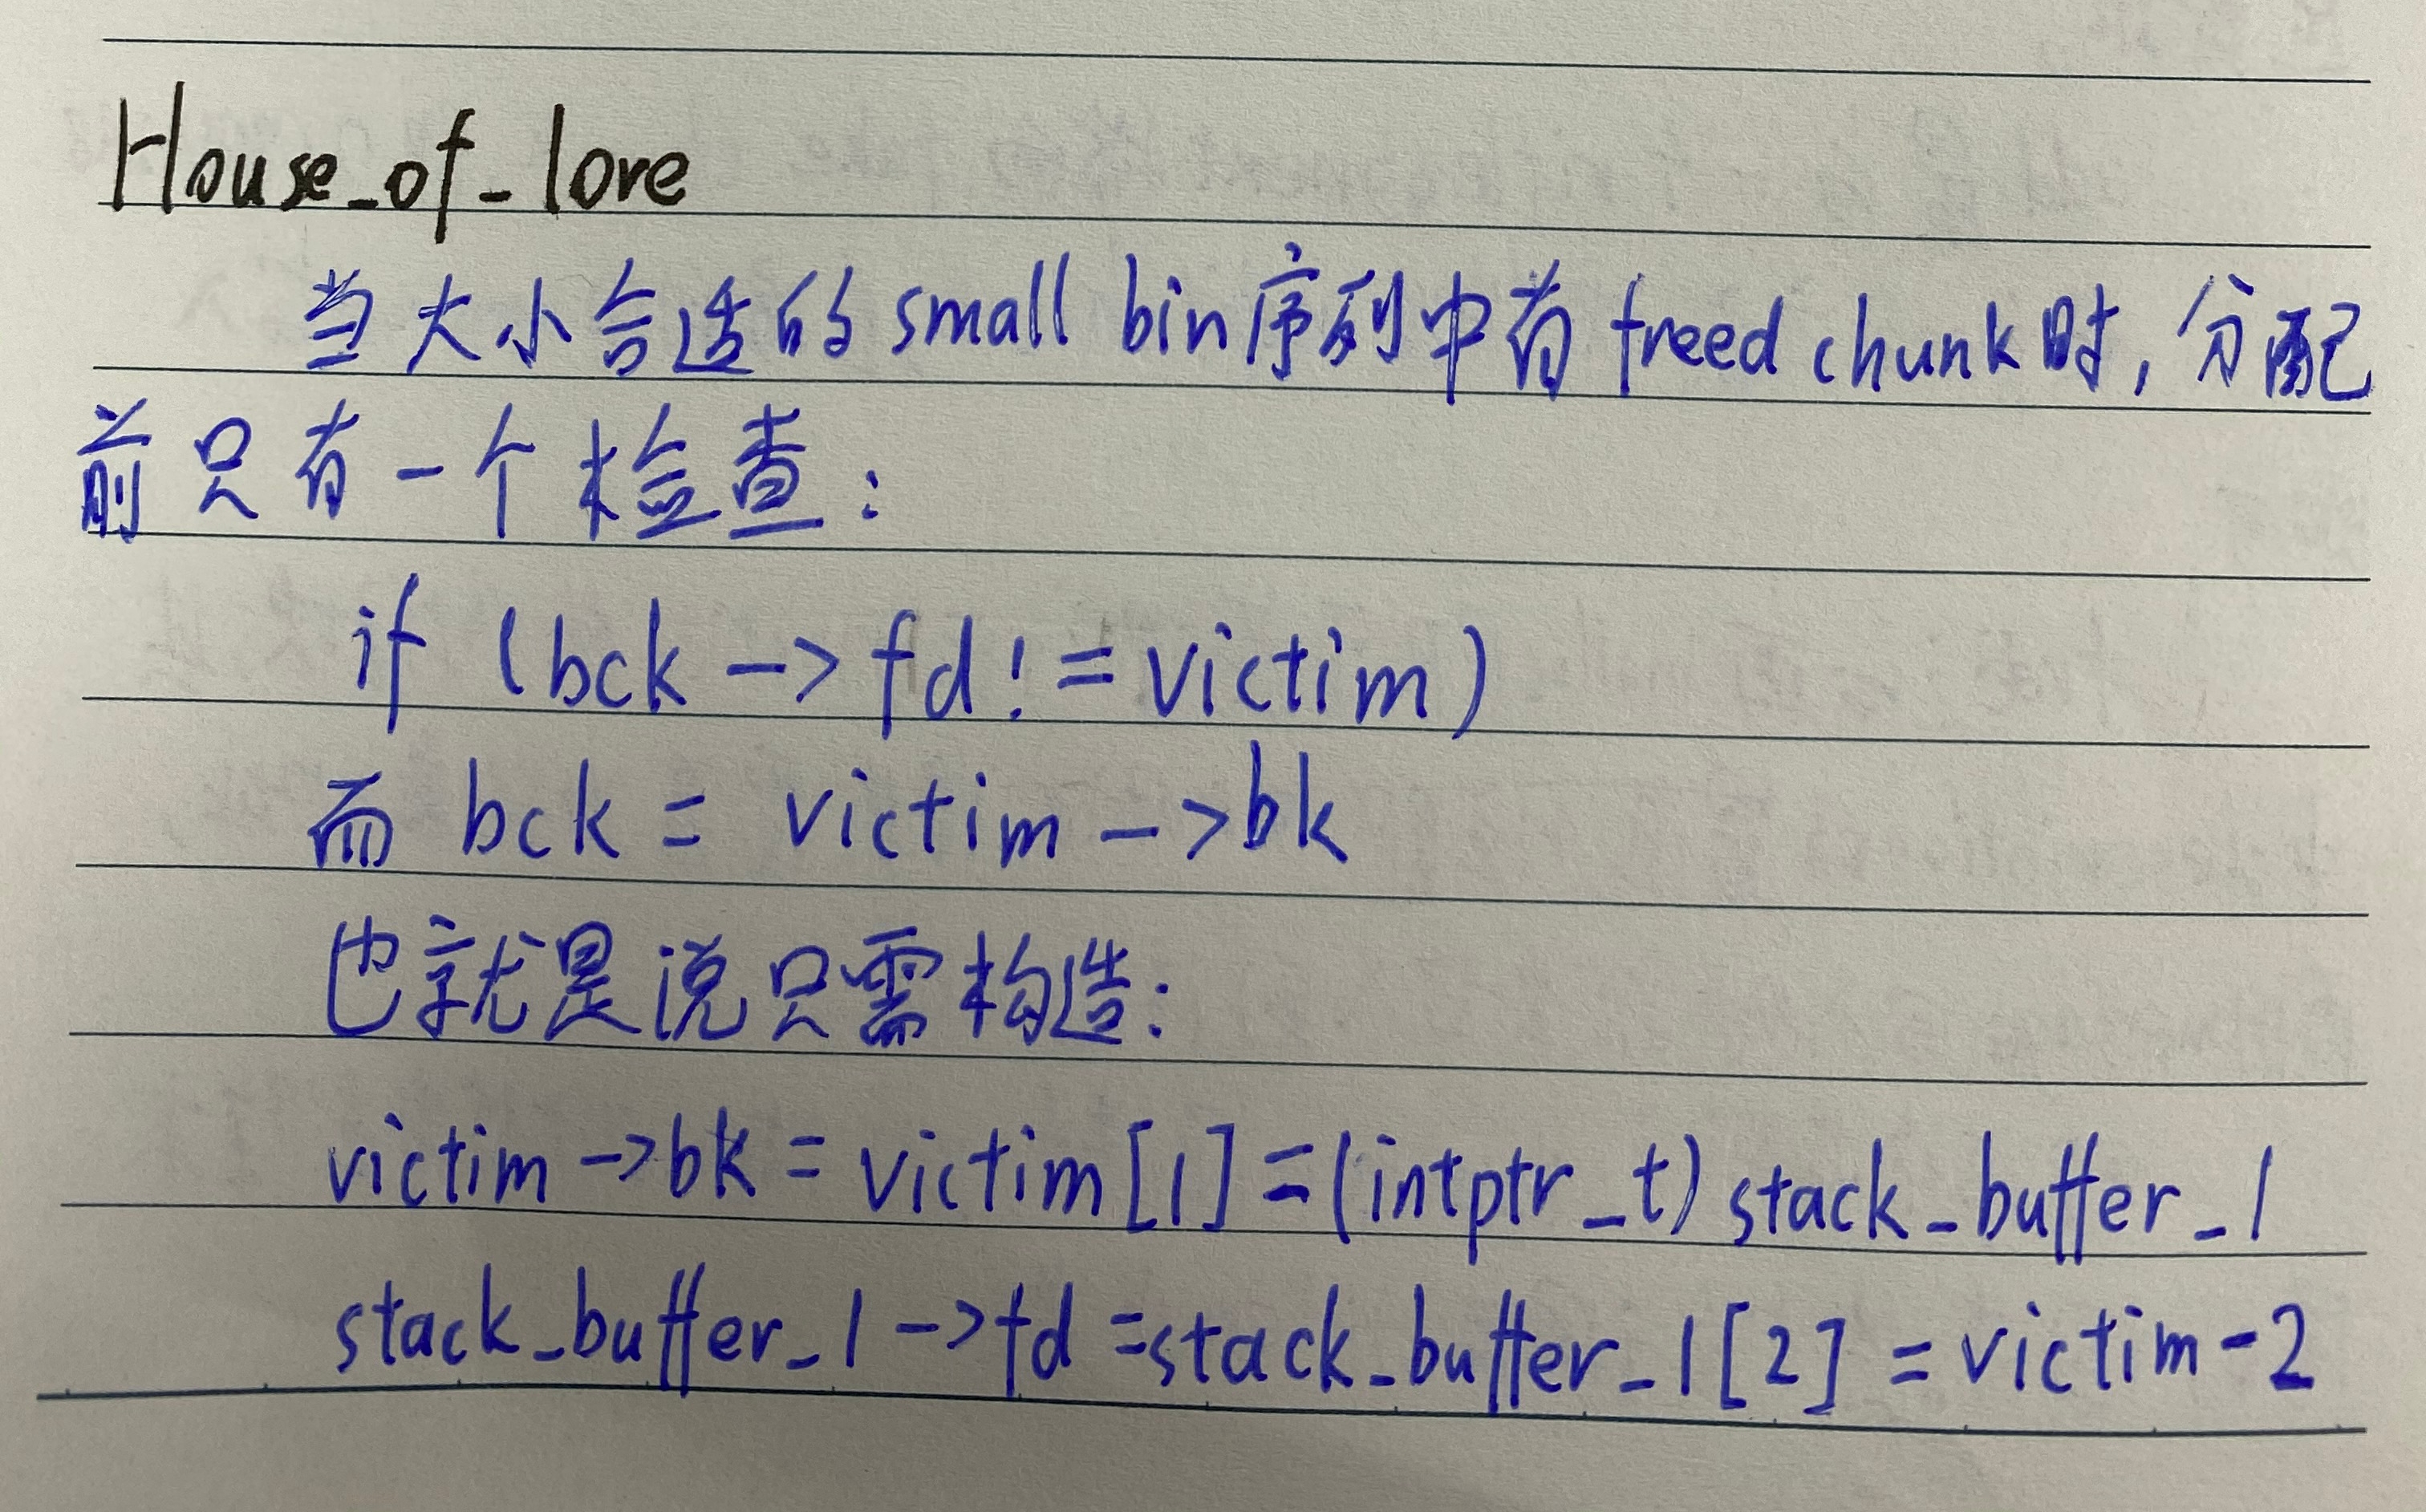 House_of_lore
当大小合适的small bin序列中有freed chunk时,分配
前只有一个检查:
if (bck -> fd != victim)
而 bck = victim -> bk
也就是说只需构造:
victim -> bk = victim[1] = (intptr_t) stack_buffer_1
stack_buffer_1 -> fd = stack_buffer_1[2] = victim-2